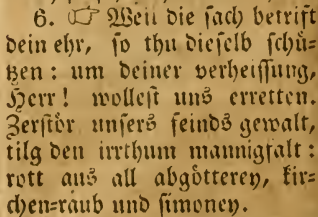 6. ☞ Weil die sach betrift
dein ehr, so thu dieselb schü-
tzen: um deiner verheissung,
Herr! wollest uns erretten.
Zerstör unsers feinds gewalt,
tilg den irrthum mannigfalt:
rott aus all abgötterey, kir-
chen-raub und simoney.